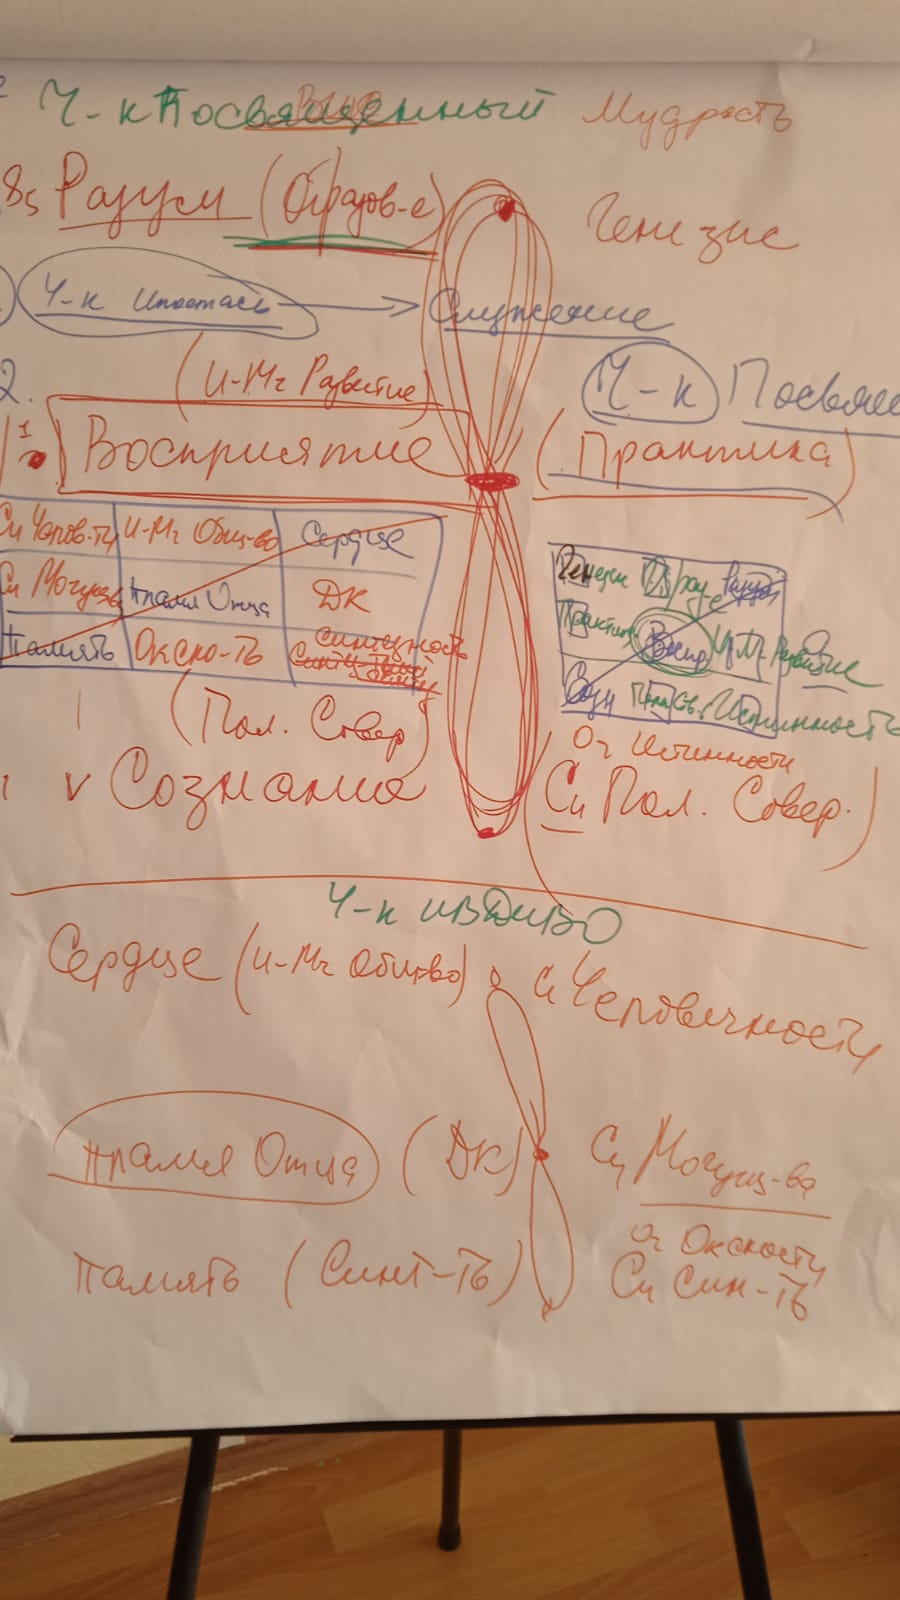 Ч-к Посвященный Мудрость
Разум (Образов-е) Генезис
Ч-к Ипостась → Служение
(И-Мг Развитие)
2. Ч-к Посвяще
1 Восприятие (Практика)
Си Челов-ти И-Мг Общ-во Сердце
Си Могущ Пламя Отца ДК
Память Окско-ть синтезность
Генезис Обрaзов-е Разум
Практика Воспр И-Мг Развитие
Созн Пол. Св. Истинность
(Пол. Совер)
Ог Истинности
v Сознание (Си Пол. Совер.)
Ч-к ИВДИВО
Сердце (И-Мг Общтво) Си Человечности
Пламя Отца (ДК) Си Могущ-ва
Ог Окскости
Память (Синт-ть) Си Син-ть